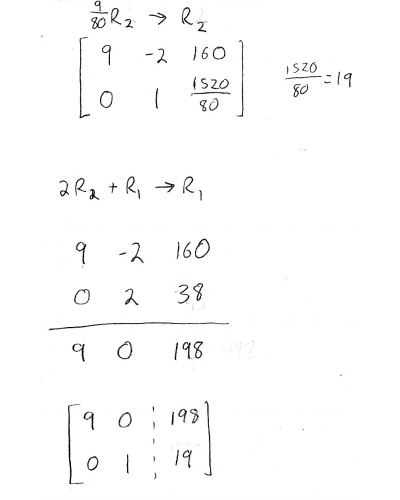 9/80 R₂ → R₂
9 -2 160
0 1 1520/80
1520/80 = 19
2R₂ + R₁ → R₁
9 -2 160
0 2 38
9 0 198
9 0 198
0 1 19